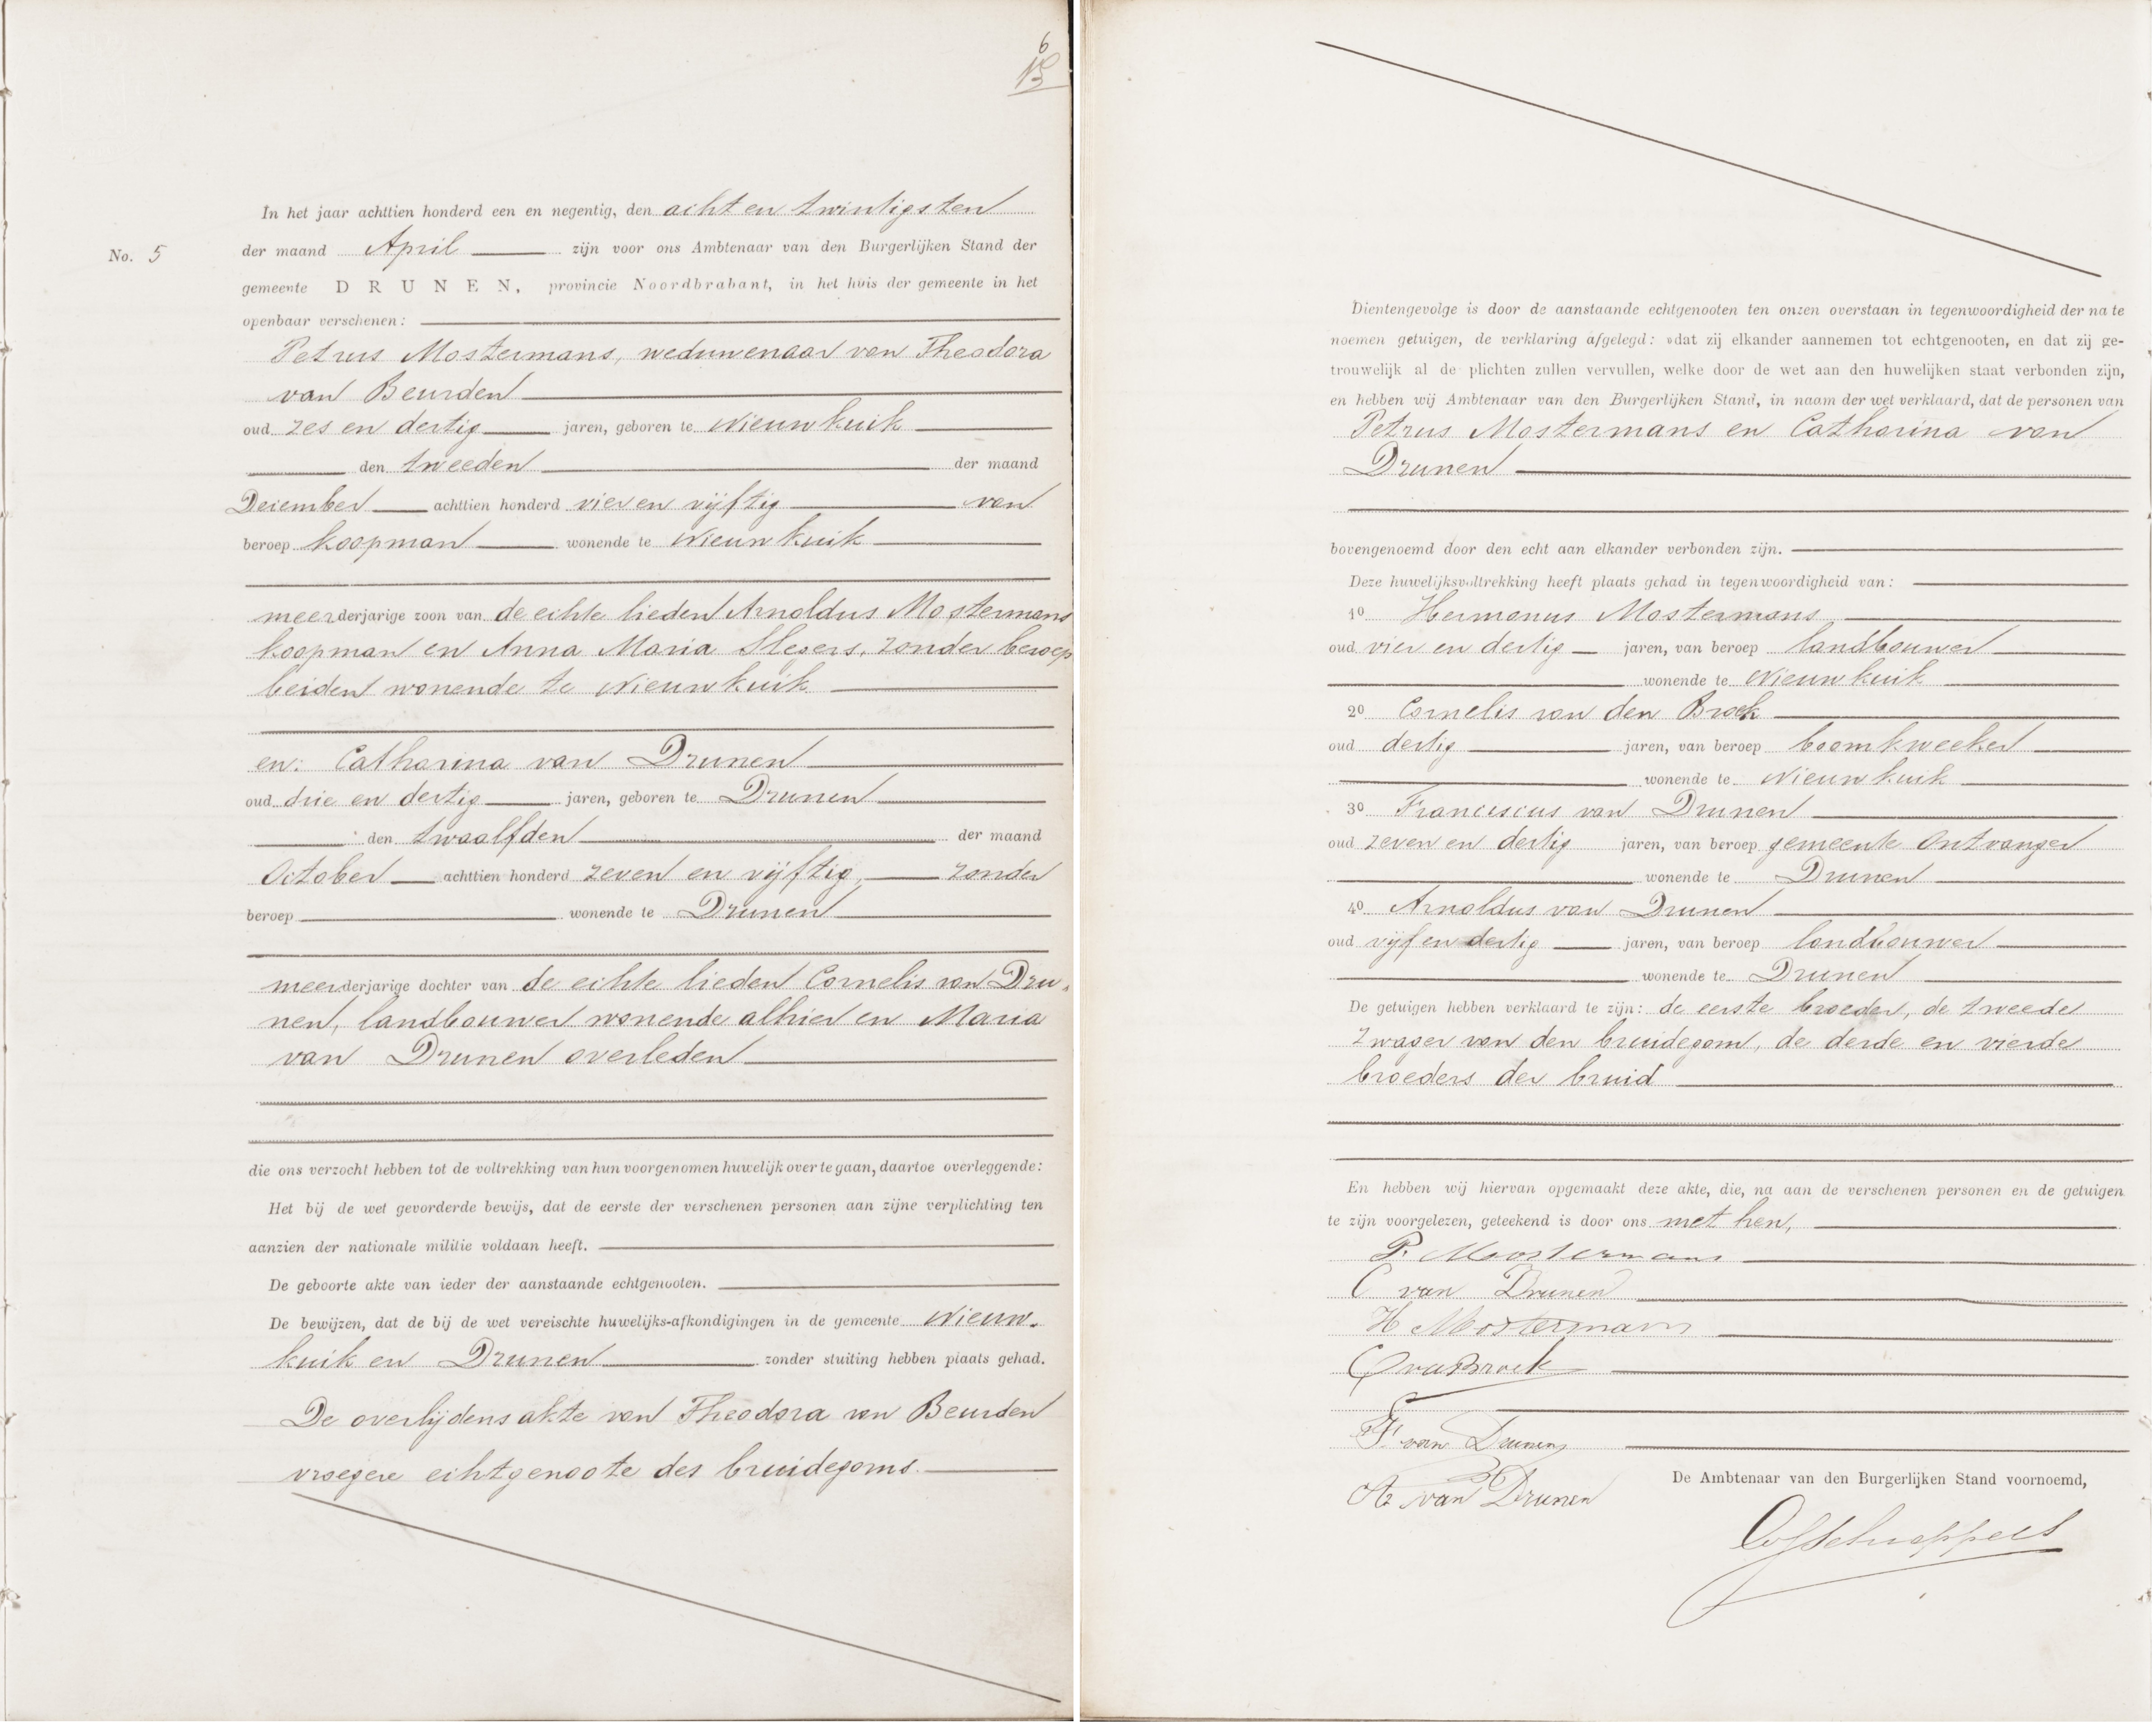 6
No. 5
In het jaar achttien honderd een en negentig, den acht en twintigsten
der maand April zijn voor ons Ambtenaar van den Burgerlijken Stand der
gemeente DRUNEN, provincie Noordbrabant, in het huis der gemeente in het
openbaar verschenen:
Petrus Mostermans, weduwenaar van Theodora
van Beurden
oud zes en dertig jaren, geboren te Nieuwkuik
den tweeden der maand
December achttien honderd vier en vijftig van
beroep koopman wonende te Nieuwkuik
meerderjarige zoon van de echte lieden Arnoldus Mostermans
koopman en Anna Maria Slegers, zonder beroep
beiden wonende te Nieuwkuik
en: Catharina van Drunen
oud drie en dertig jaren, geboren te Drunen
den twaalfden der maand
October achttien honderd zeven en vijftig, zonder
beroep wonende te Drunen
meerderjarige dochter van de echte lieden Cornelis van Dru-
nen, landbouwer wonende alhier en Maria
van Drunen overleden
die ons verzocht hebben tot de voltrekking van hun voorgenomen huwelijk over te gaan, daartoe overleggende:
Het bij de wet gevorderde bewijs, dat de eerste der verschenen personen aan zijne verplichting ten
aanzien der nationale militie voldaan heeft.
De geboorte akte van ieder der aanstaande echtgenooten.
De bewijzen, dat de bij de wet vereischte huwelijks-afkondigingen in de gemeente Nieuw-
kuik en Drunen zonder stuiting hebben plaats gehad.
De overlijdens akte van Theodora van Beurden
vroegere echtgenoote des bruidegoms.
Dientengevolge is door de aanstaande echtgenooten ten onzen overstaan in tegenwoordigheid der na te
noemen getuigen, de verklaring afgelegd: »dat zij elkander aannemen tot echtgenooten, en dat zij ge-
trouwelijk al de plichten zullen vervullen, welke door de wet aan den huwelijken staat verbonden zijn,
en hebben wij Ambtenaar van den Burgerlijken Stand, in naam der wet verklaard, dat de personen van
Petrus Mostermans en Catharina van
Drunen
bovengenoemd door den echt aan elkander verbonden zijn.
Deze huwelijksvoltrekking heeft plaats gehad in tegenwoordigheid van:
1o Hermanus Mostermans
oud vier en dertig jaren, van beroep landbouwer
wonende te Nieuwkuik
2o Cornelis van den Broek
oud dertig jaren, van beroep boomkweeker
wonende te Nieuwkuik
3o Franciscus van Drunen
oud zeven en dertig jaren, van beroep gemeente Ontvanger
wonende te Drunen
4o Arnoldus van Drunen
oud vijf en dertig jaren, van beroep landbouwer
wonende te Drunen
De getuigen hebben verklaard te zijn: de eerste broeder, de tweede
zwager van den bruidegom, de derde en vierde
broeders der bruid
En hebben wij hiervan opgemaakt deze akte, die, na aan de verschenen personen en de getuigen
te zijn voorgelezen, geteekend is door ons met hen,
P. Moostermans
C van Drunen
H Mostermans
C vd Broek
F. van Drunen
A van Drunen
De Ambtenaar van den Burgerlijken Stand voornoemd,